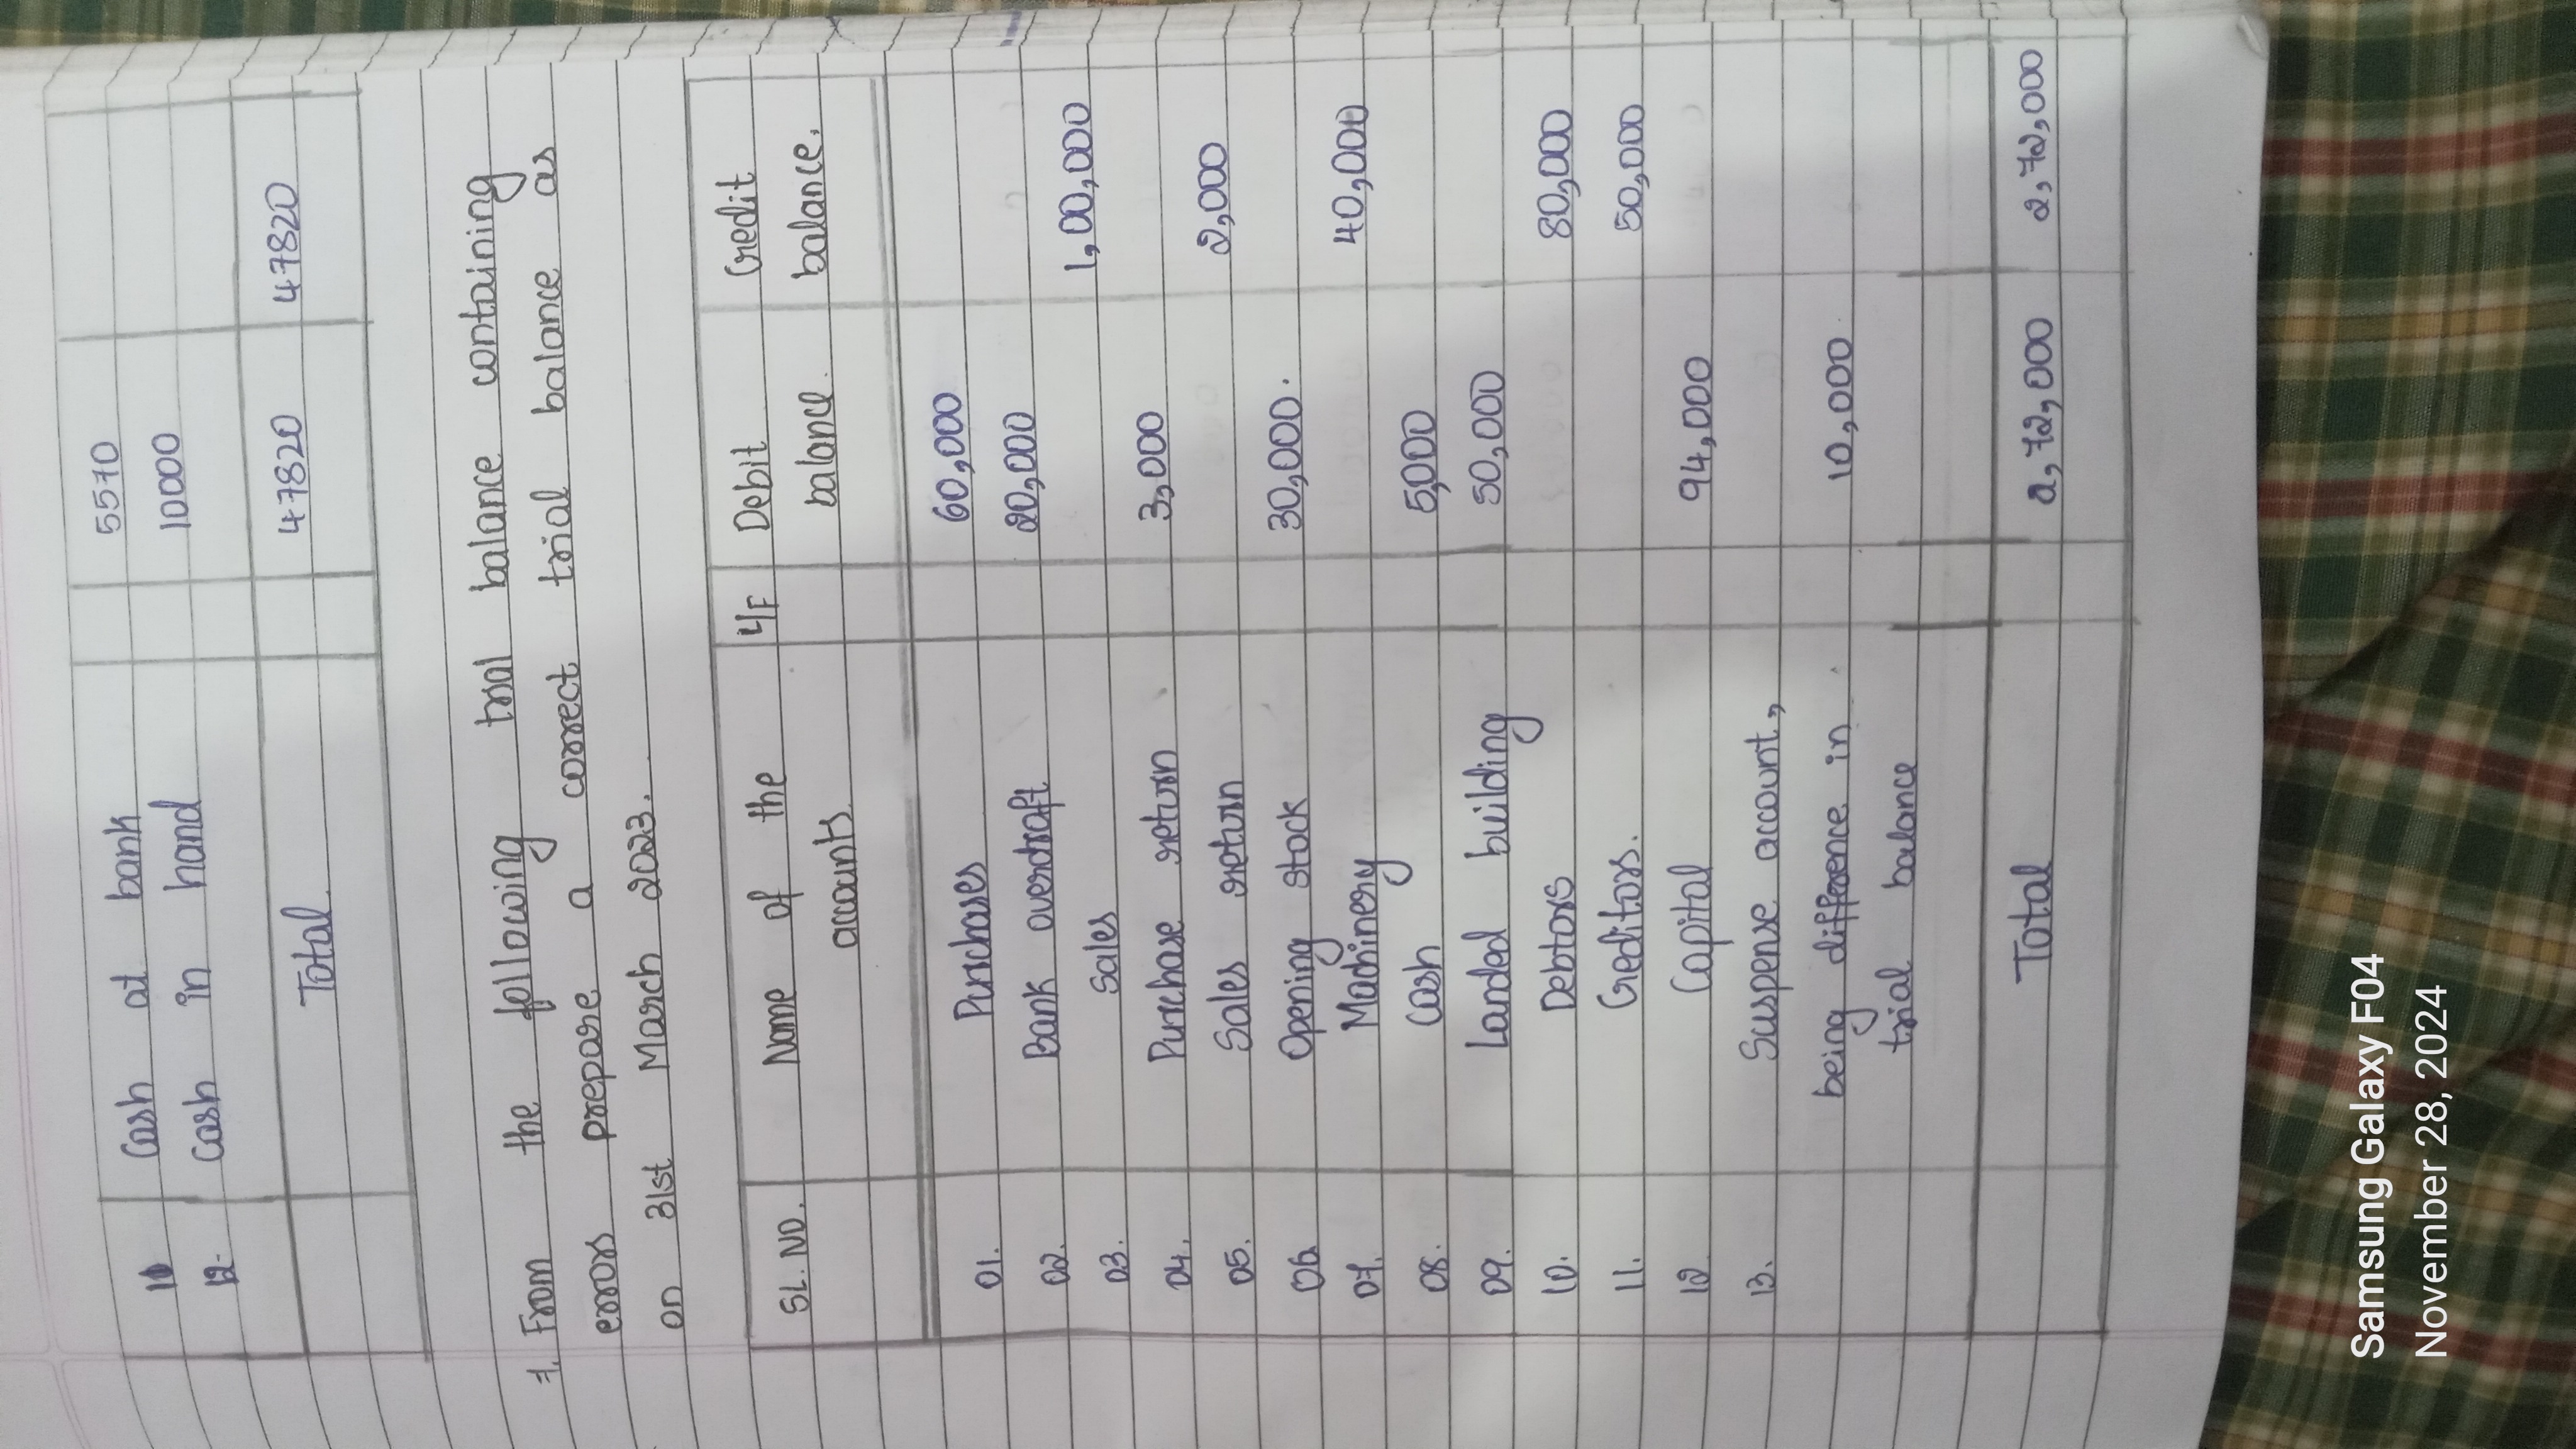 11 Cash at bank 5570
12. Cash in hand 10000
Total 47820 47820
7. From the following trial balance containing
errors prepare a correct trial balance as
on 31st March 2023.
SL. NO. Name of the L/F Debit Credit
accounts balance. balance.
01. Purchases 60,000
02. Bank overdraft 20,000
03. Sales 1,00,000
04. Purchase return 3,000
05. Sales return 2,000
06. Opening stock 30,000.
07. Machinery 40,000
08. Cash 5,000
09. Landed building 50,000
10. Debtors 80,000
11. Creditors. 50,000
12 Capital 94,000
13. Suspense account,
being difference in 10,000
trial balance
Total 2,72,000 2,72,000
Samsung Galaxy F04
November 28, 2024